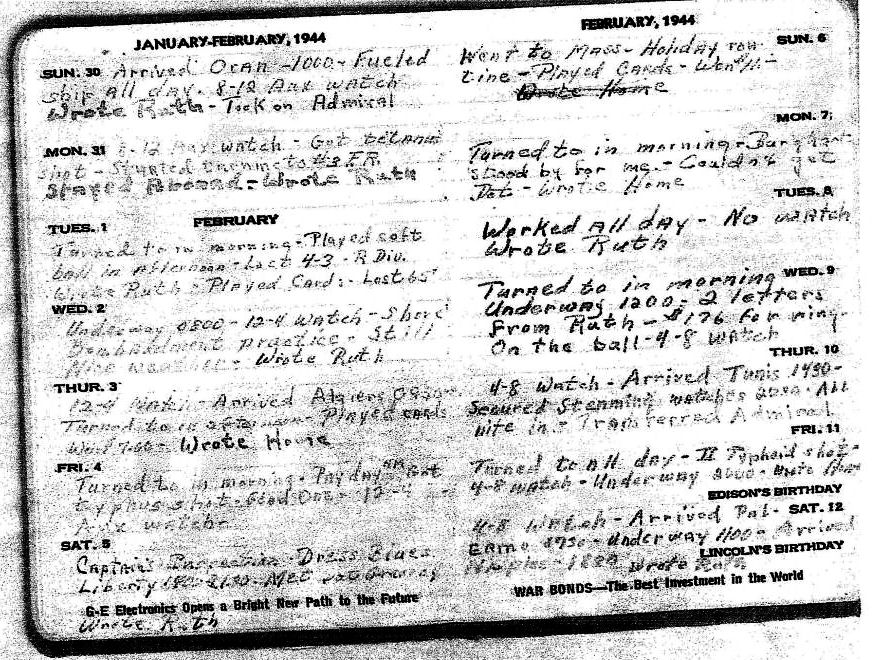 JANUARY-FEBRUARY, 1944
SUN. 30 Arrived Oran -1000- Fueled
ship All day. 8-12 Aux watch
Wrote Ruth - Took on Admiral
MON. 31 8-12 Aux watch - Got tetanus
shot - Started
Stayed Aboard - Wrote Ruth
TUES. 1 FEBRUARY
Turned to in morning - Played soft
ball in Afternoon - Lost 4-3 - R Div.
Wrote Ruth - Played Cards - Lost 65
WED. 2
Underway 0800 - 12-4 watch - Shore
Bombardment practice - Still
Nice weather - Wrote Ruth
THUR. 3
12-4 Watch - Arrived Algiers
Turned to in afternoon - Played cards
Wrote Home
FRI. 4
Turned to in morning - Payday - Got
typhus shot - Good One - 12-4
Aux watch -
SAT. 5
Captain's Inspection - Dress Blues
Liberty - Met
G-E Electronics Opens a Bright New Path to the Future
Wrote Ruth
FEBRUARY, 1944
SUN. 6
Went to Mass - Holiday rou-
tine - Played Cards - Won
Wrote Home
MON. 7
Turned to in morning -
Stood by for me - Couldn't get
Wrote Home
TUES. 8
Worked All day - No watch
Wrote Ruth
WED. 9
Turned to in morning
Underway 1200 - 2 letters
From Ruth - $176 for ring.
On the ball - 4-8 watch
THUR. 10
4-8 Watch - Arrived Tunis 1430 -
Secured Steaming watches - All
nite in - Transferred Admiral
FRI. 11
Turned to All day - II Typhoid shot -
4-8 watch - Underway
EDISON'S BIRTHDAY
SAT. 12
4-8 Watch - Arrived Pal-
ermo 0730 - Underway 1100 - Arrived
Naples - Wrote Ruth
LINCOLN'S BIRTHDAY
WAR BONDS—The Best Investment in the World